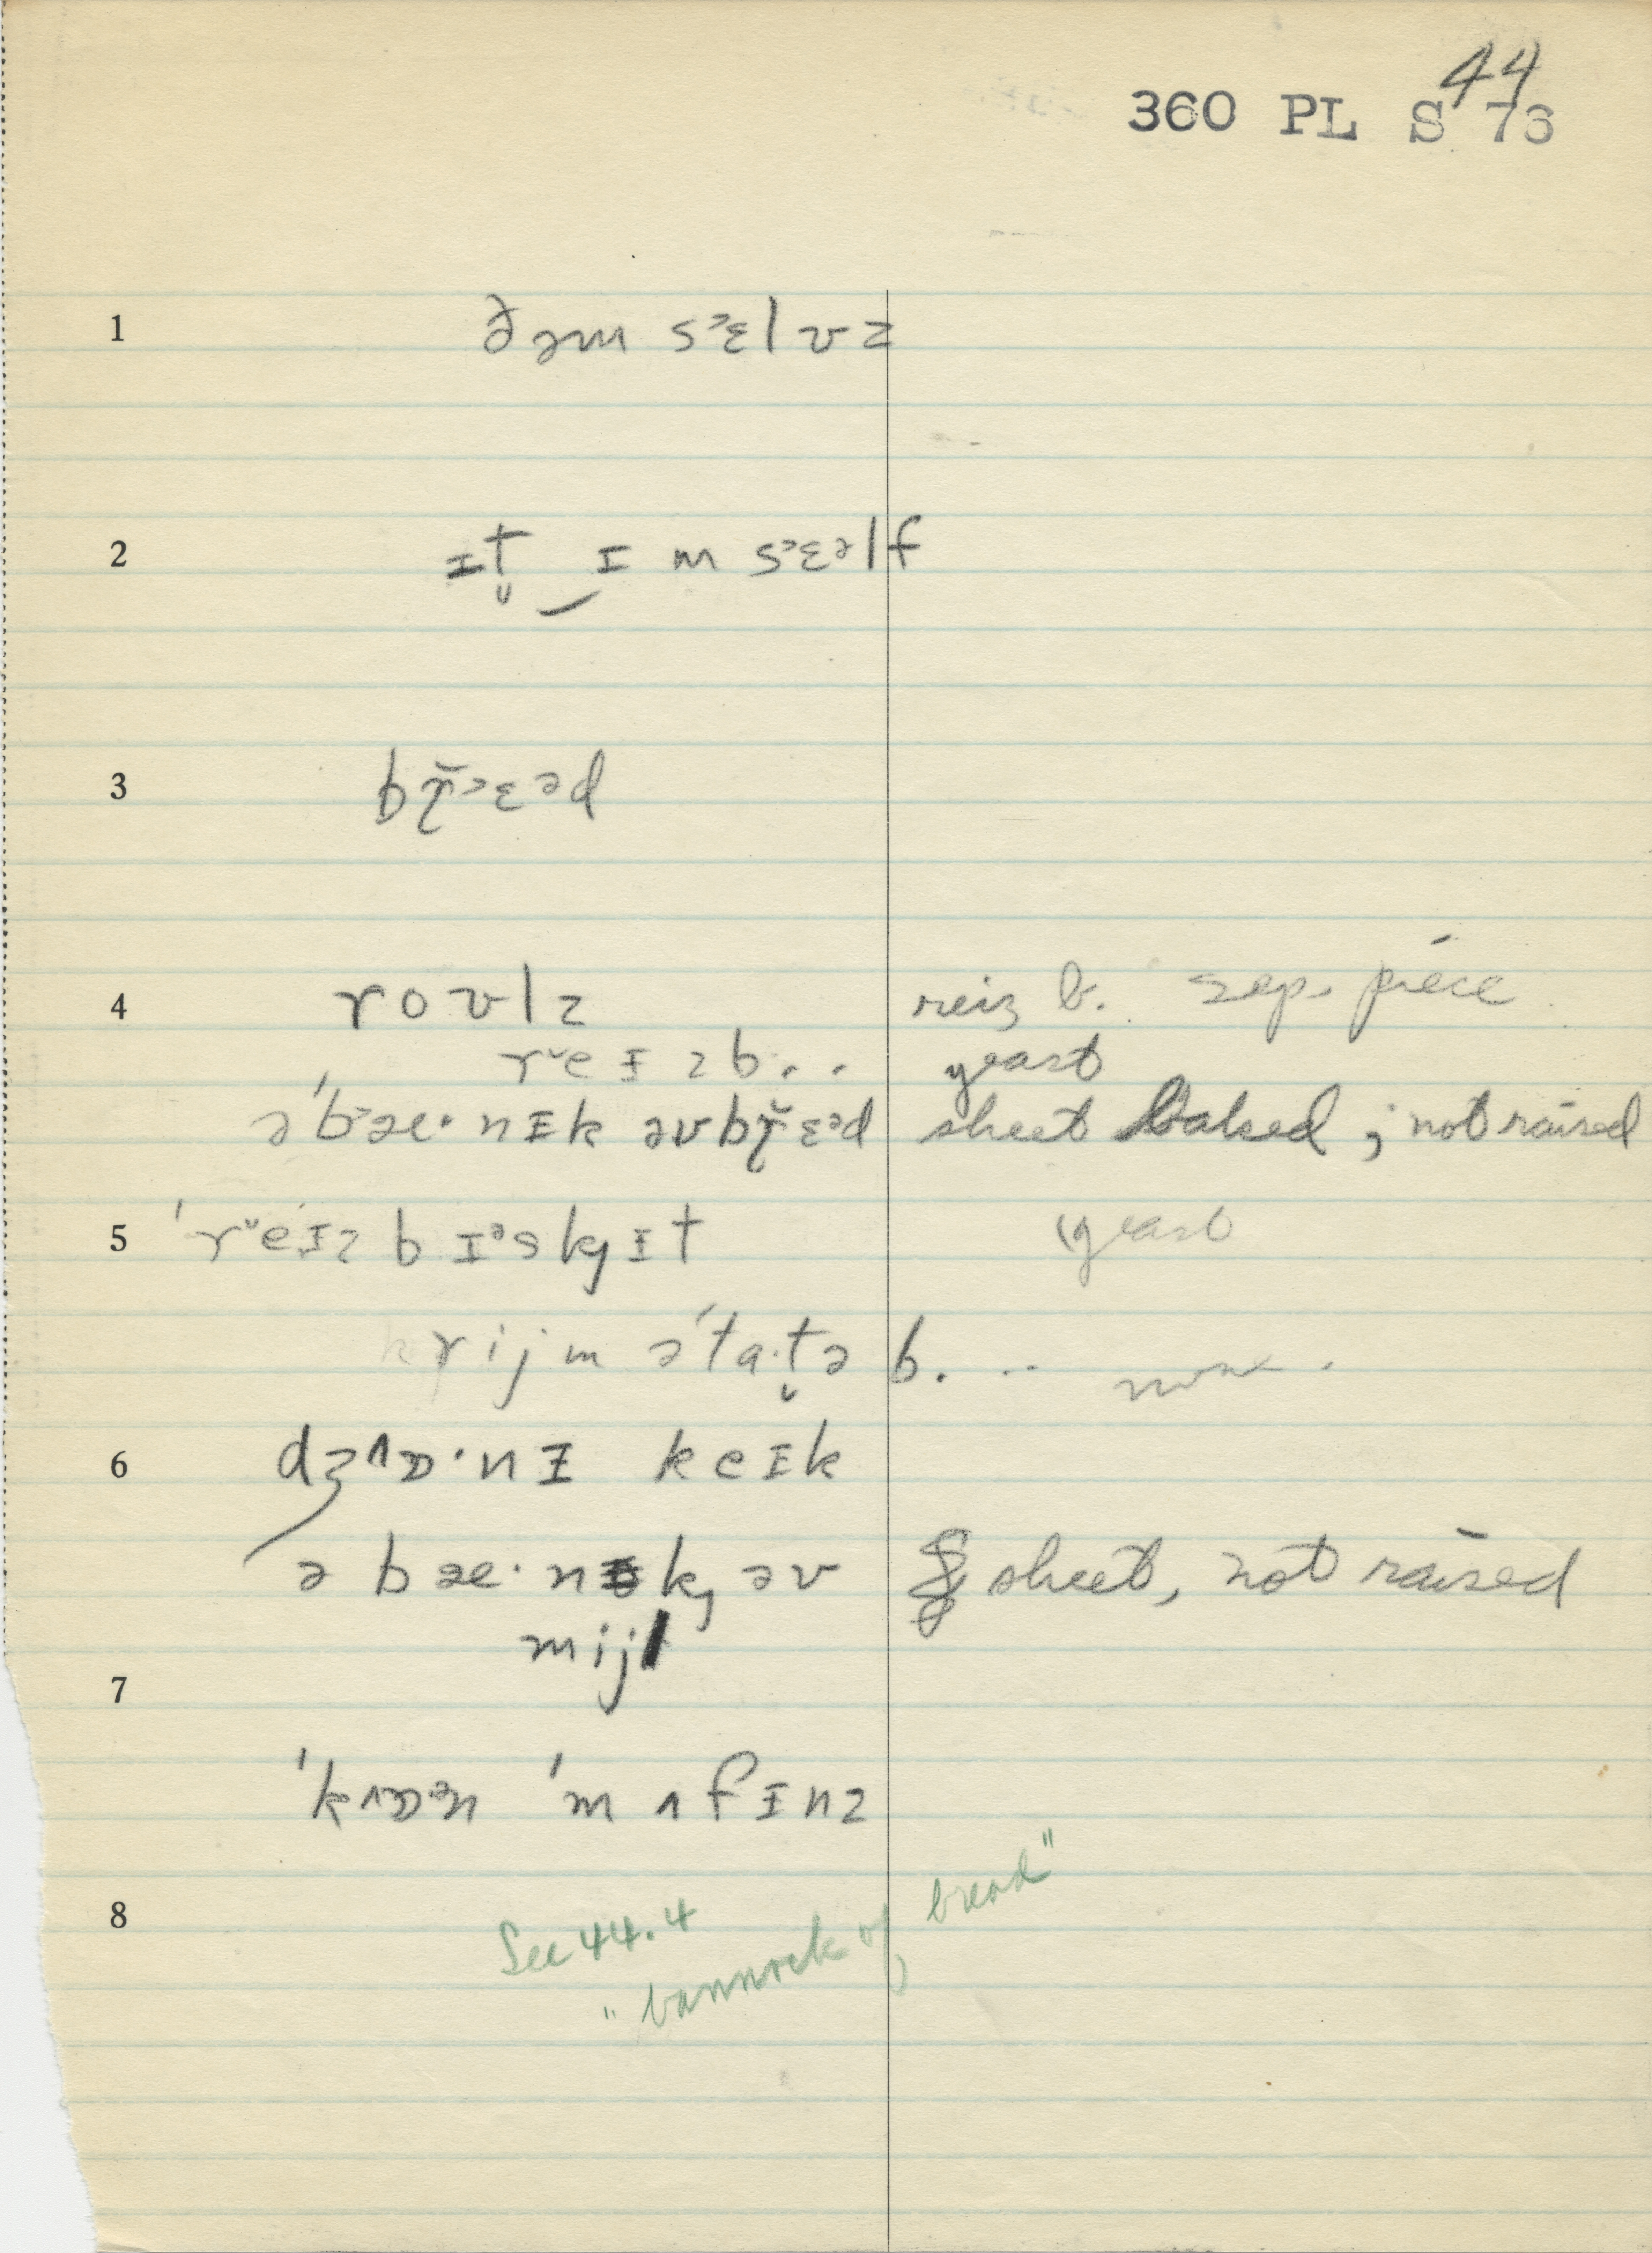 44
360 PL S 76
1 ðəm s˃ɛlvz
2 ɪt̬‿ɪm s˃ɛəlf
3 bɽ̆˃ɛəd
4 roʊlz reiz b. sep. piece
r˅eɪzb.. yeast
əˈb˃æ·nɪk əvbɽ̆ɛəd sheet baked; not raised
5 ˈr˅eɪz bɪᵊskɪt (yeast
krijm əˈta·t̬ə b. ...
6 dʒ^ɒ·nɪ keɪk
ə bæ·nək əv sheet, not raised
mijl
7
ˈk^ɒən ˈmʌfɪnz
8 See 44.4
"bannock of bread"